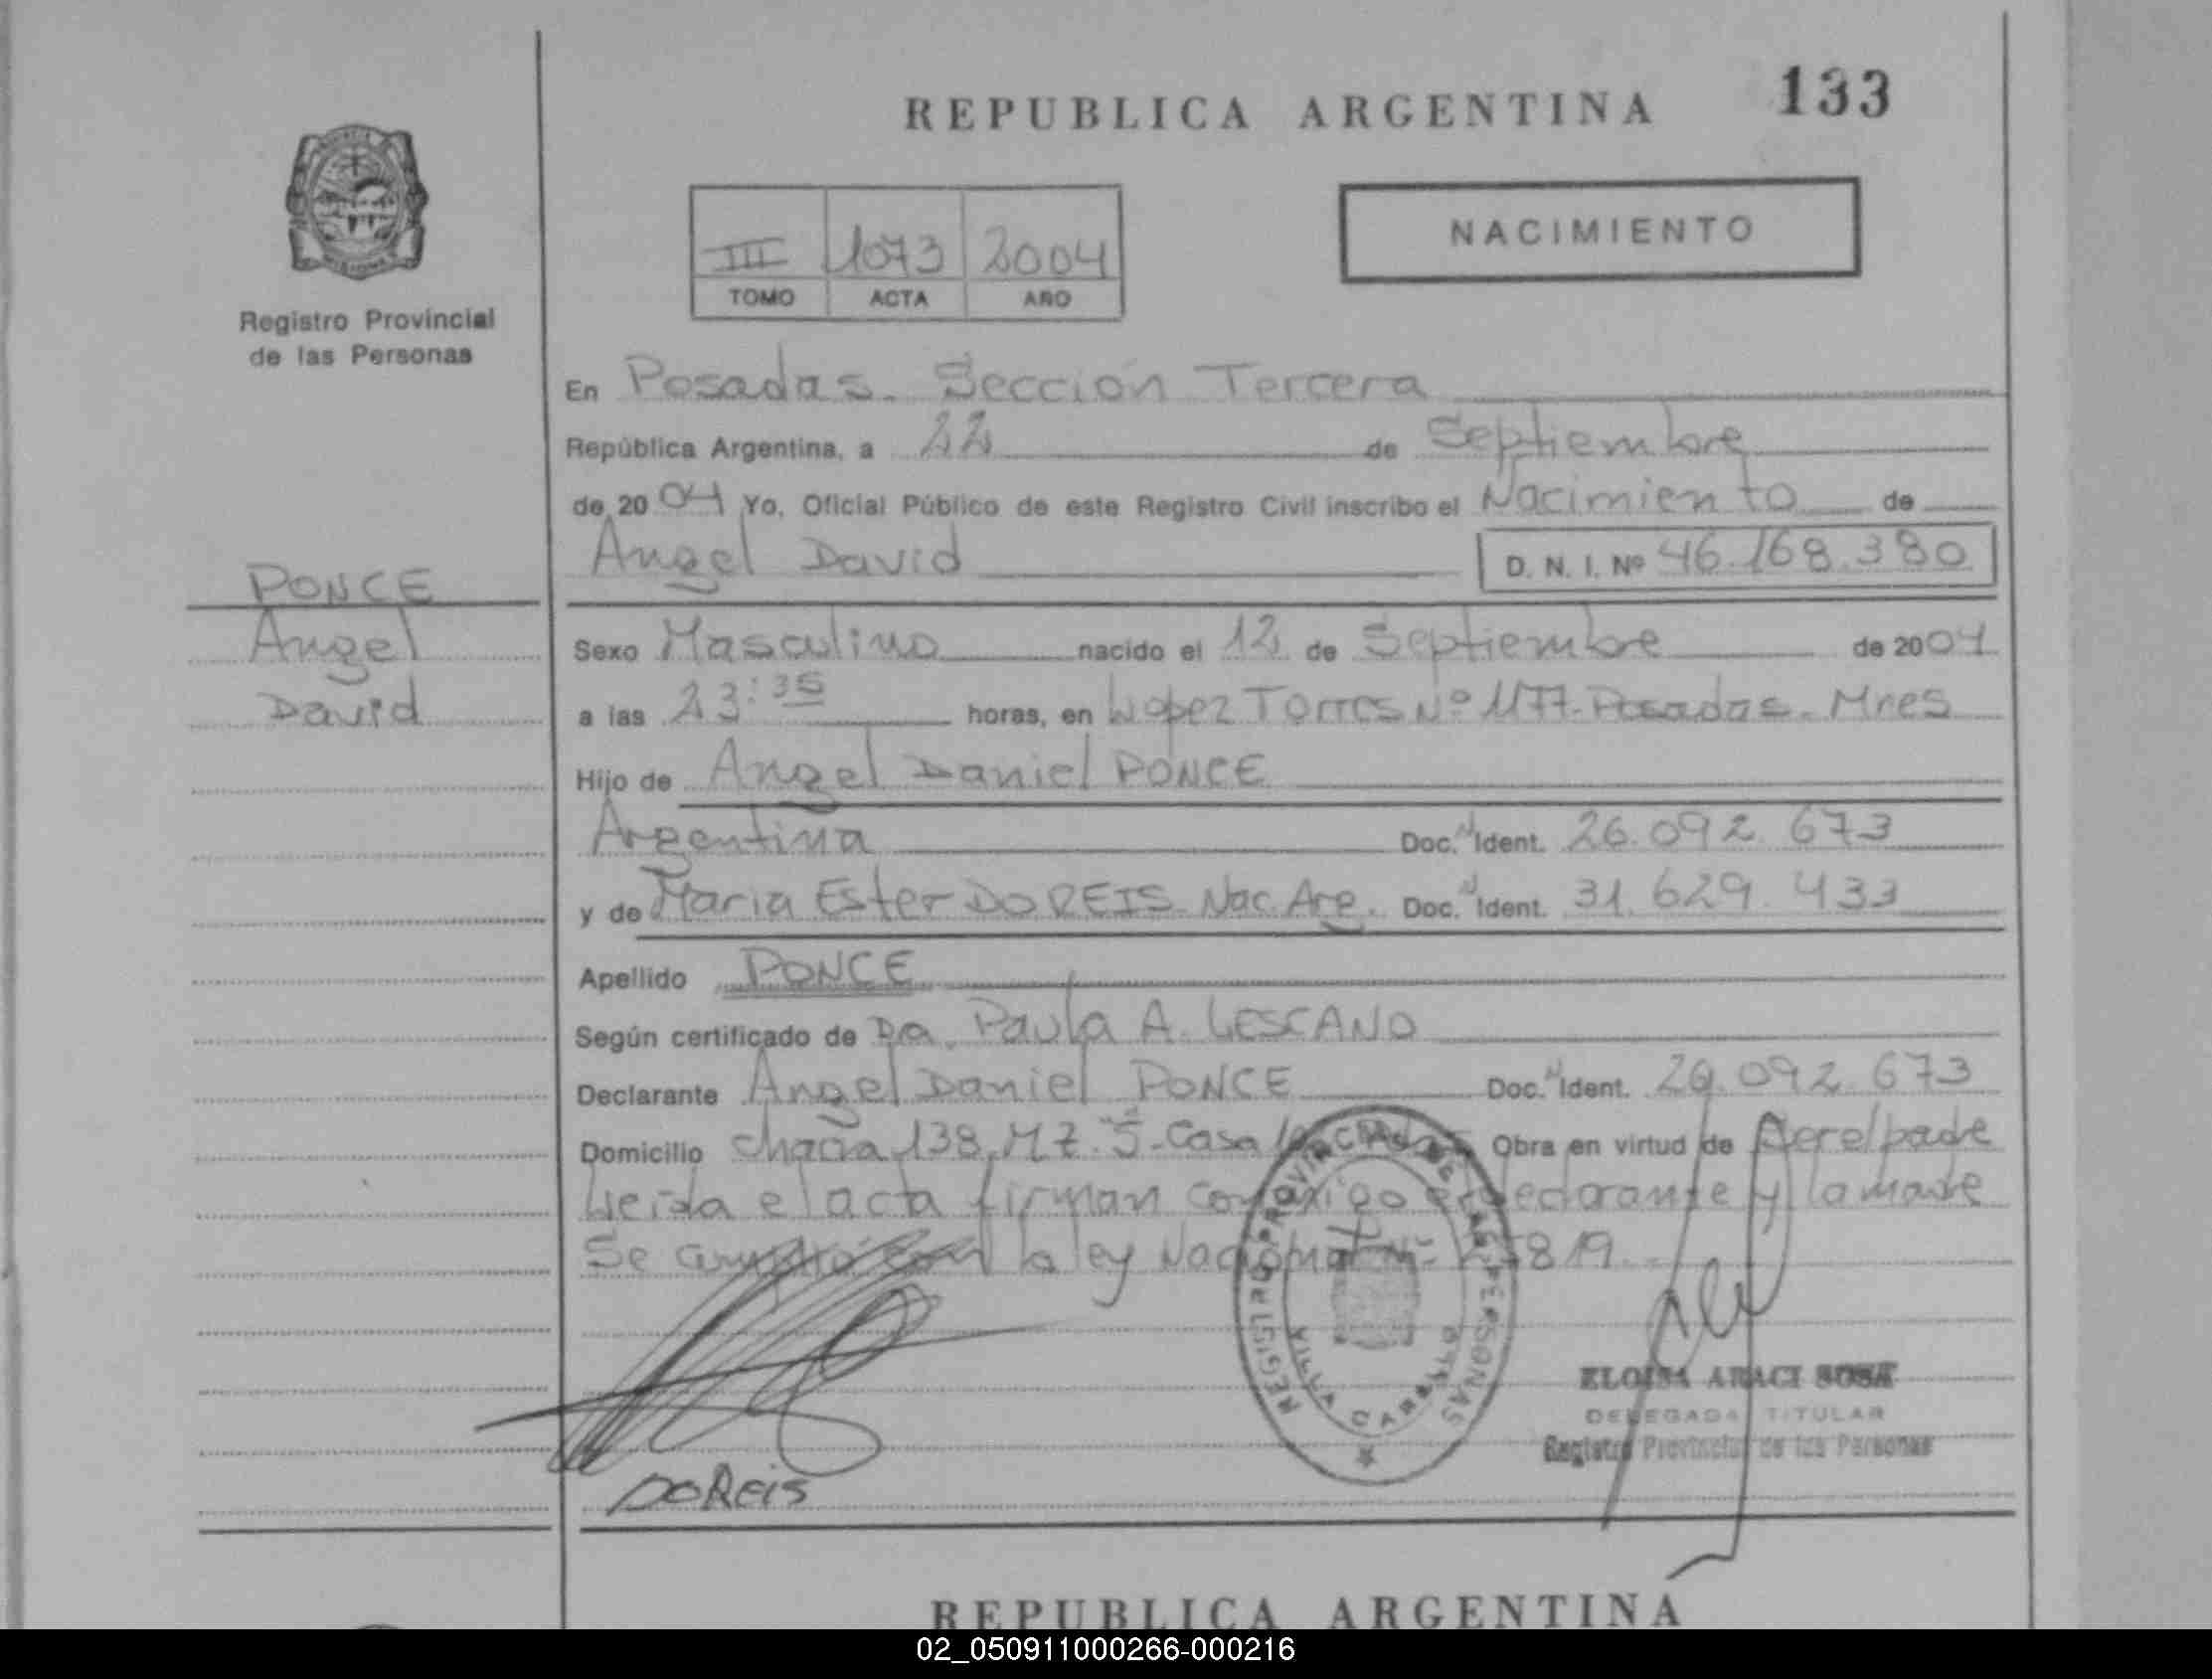 REPUBLICA ARGENTINA 133
NACIMIENTO
III 1073 2004
TOMO ACTA AÑO
Registro Provincial
de las Personas
En Posadas. Sección Tercera
República Argentina, a 22 de Septiembre
de 2004 Yo, Oficial Público de este Registro Civil inscribo el Nacimiento de
Angel David D. N. I. Nº 46.168.380
PONCE
Angel
David
Sexo Masculino nacido el 12 de Septiembre de 2004
a las 23:35 horas, en Lopez Torres Nº 1177-Posadas. Mnes
Hijo de Angel Daniel PONCE
Argentina Doc. N Ident. 26.092.673
y de Maria Ester DO REIS Nac. Arg. Doc. N Ident. 31.629.433
Apellido PONCE
Según certificado de Dra. Paula A. LESCANO
Declarante Angel Daniel PONCE Doc. N Ident. 26.092.673
Domicilio chacra 138. MZ. "5"-Casa Obra en virtud de Ser el padre
Leída el acta firman conmigo el declarante y la madre
Se cumplió con la ley Nacional Nº 25819.
REGISTRO PROVINCIAL DE LAS PERSONAS
VILLA CABELLO
ELOISA ARACI SOSA
DELEGADA TITULAR
Registro Provincial de las Personas
DOREIS
REPUBLICA ARGENTINA
02_050911000266-000216